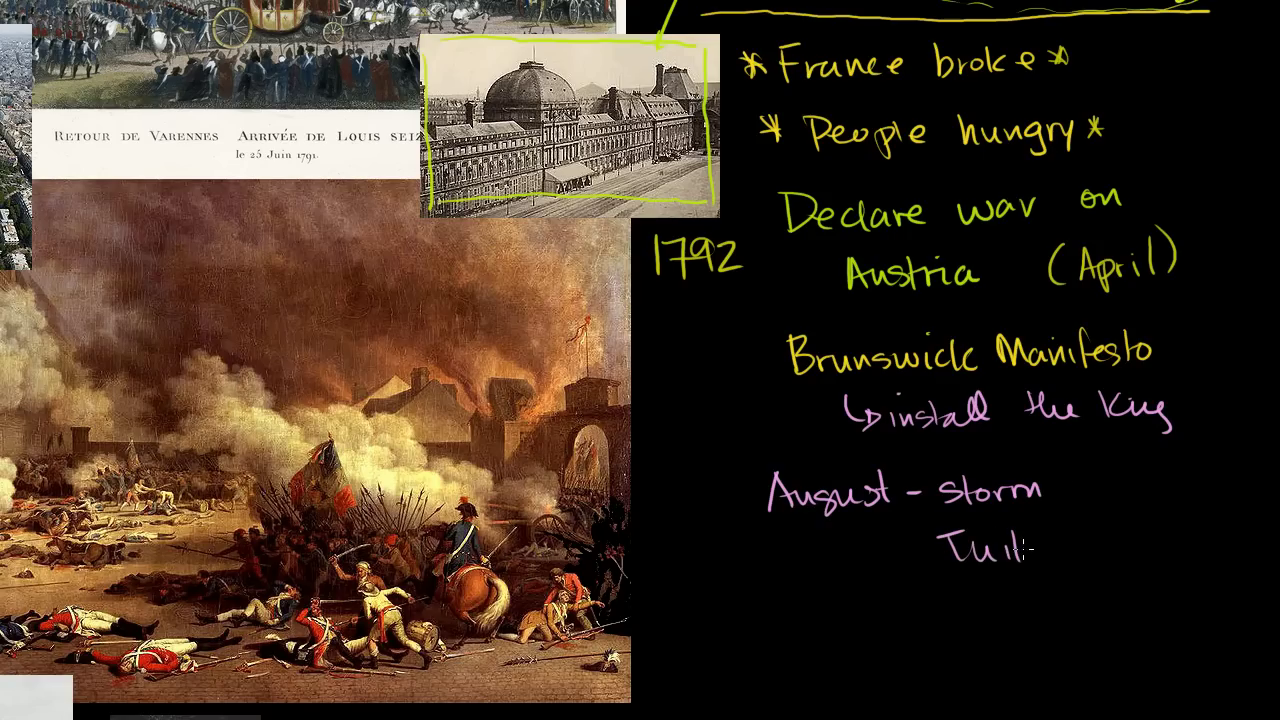 RETOUR DE VARENNES ARRIVÉE DE LOUIS SEIZ
le 25 Juin 1791.
*France broke*
* People hungry*
1792
Declare war on
Austria (April)
Brunswick Manifesto
↳install the King
August - storm
Tuil